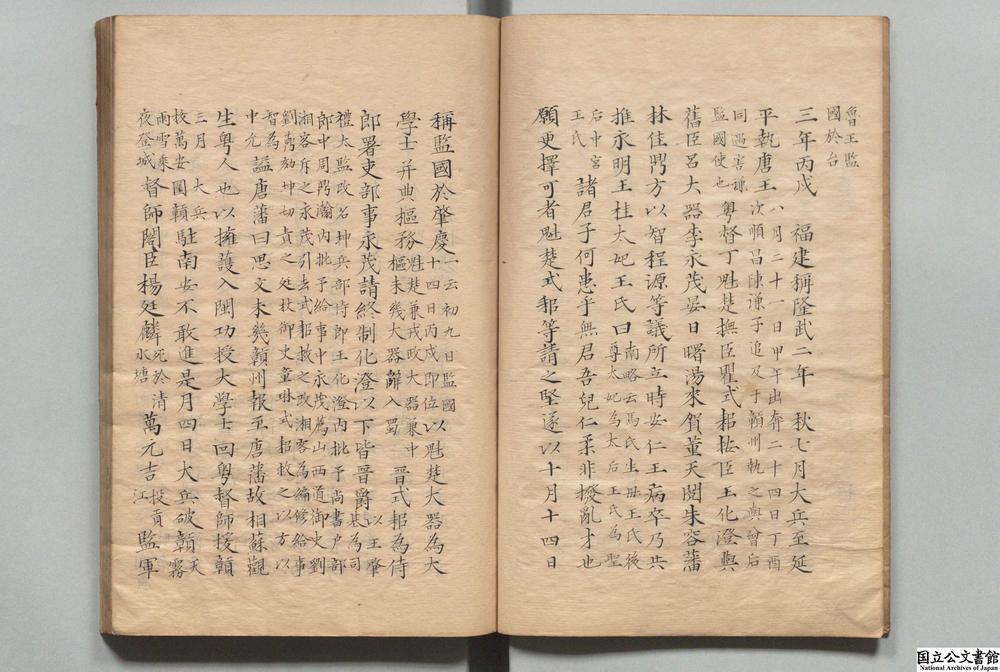 魯王監
國於台
三年丙戌 福建稱隆武二年 秋七月大兵至延
平執唐王 八月三十一日甲午出奔二十四日丁酉
次順昌陳謙子追及于顓州執之與曾后
同過害謙
監國使也
粵督丁魁楚撫臣瞿式耜按臣王化澄與
舊臣呂大器李永茂晏日曙湯來賀董天閱朱容藩
林佳鼎方以智程源等議所立時安仁王病卒乃共
推永明王桂太妃王氏曰 南略云馬氏生母王氏後
尊太妃為太后王氏為聖
后中宮
王氏
諸君子何患乎無君吾兒仁柔非撥亂才也
願更擇可者魁楚式耜等請之堅遂以十月十四日
稱監國於肇慶 一云初九日監國
十四日丙戌即位
以魁楚大器為大
學士幷典樞務 魁楚兼戎政大器兼中
樞未幾大器辭入蜀
晉式耜為侍
郎署吏部事永茂請終制化澄以下皆晉爵 以王肇
基為司
禮太監改名坤兵部侍郎王化澄內批予尚書戶部
郎中周鼎瀚內批予給事中永茂薦山西道御史劉
湘客斥之永茂引去式耜救之改湘客為編修給事
劉鼒劾坤切責之廷杖御史童琳式耜救之以方以
智為
中允
謚唐藩曰思文未幾顓州報至唐藩故相蘇觀
生粵人也以擁護入閩功授大學士回粵督師援顓
三月大兵
技萬安圍顓駐南安不敢進是月四日大兵破顓 天
霧
雨雪乘
夜登城
督師閣臣楊廷麟 死於清
水塘
萬元吉 投貢
江
監軍
国立公文書館
National Archives of Japan